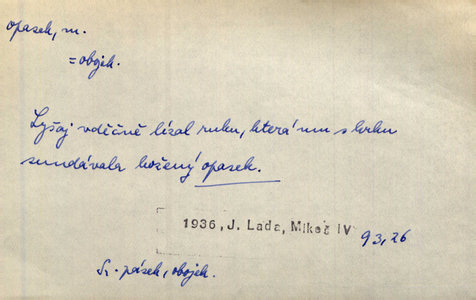 opasek, m.
= obojek.
Lyšaj vděčně lízal ruku, která mu s krku
sundávala kožený opasek.
1936, J. Lada, Mikeš IV 93, 26
Sr. pásek, obojek.